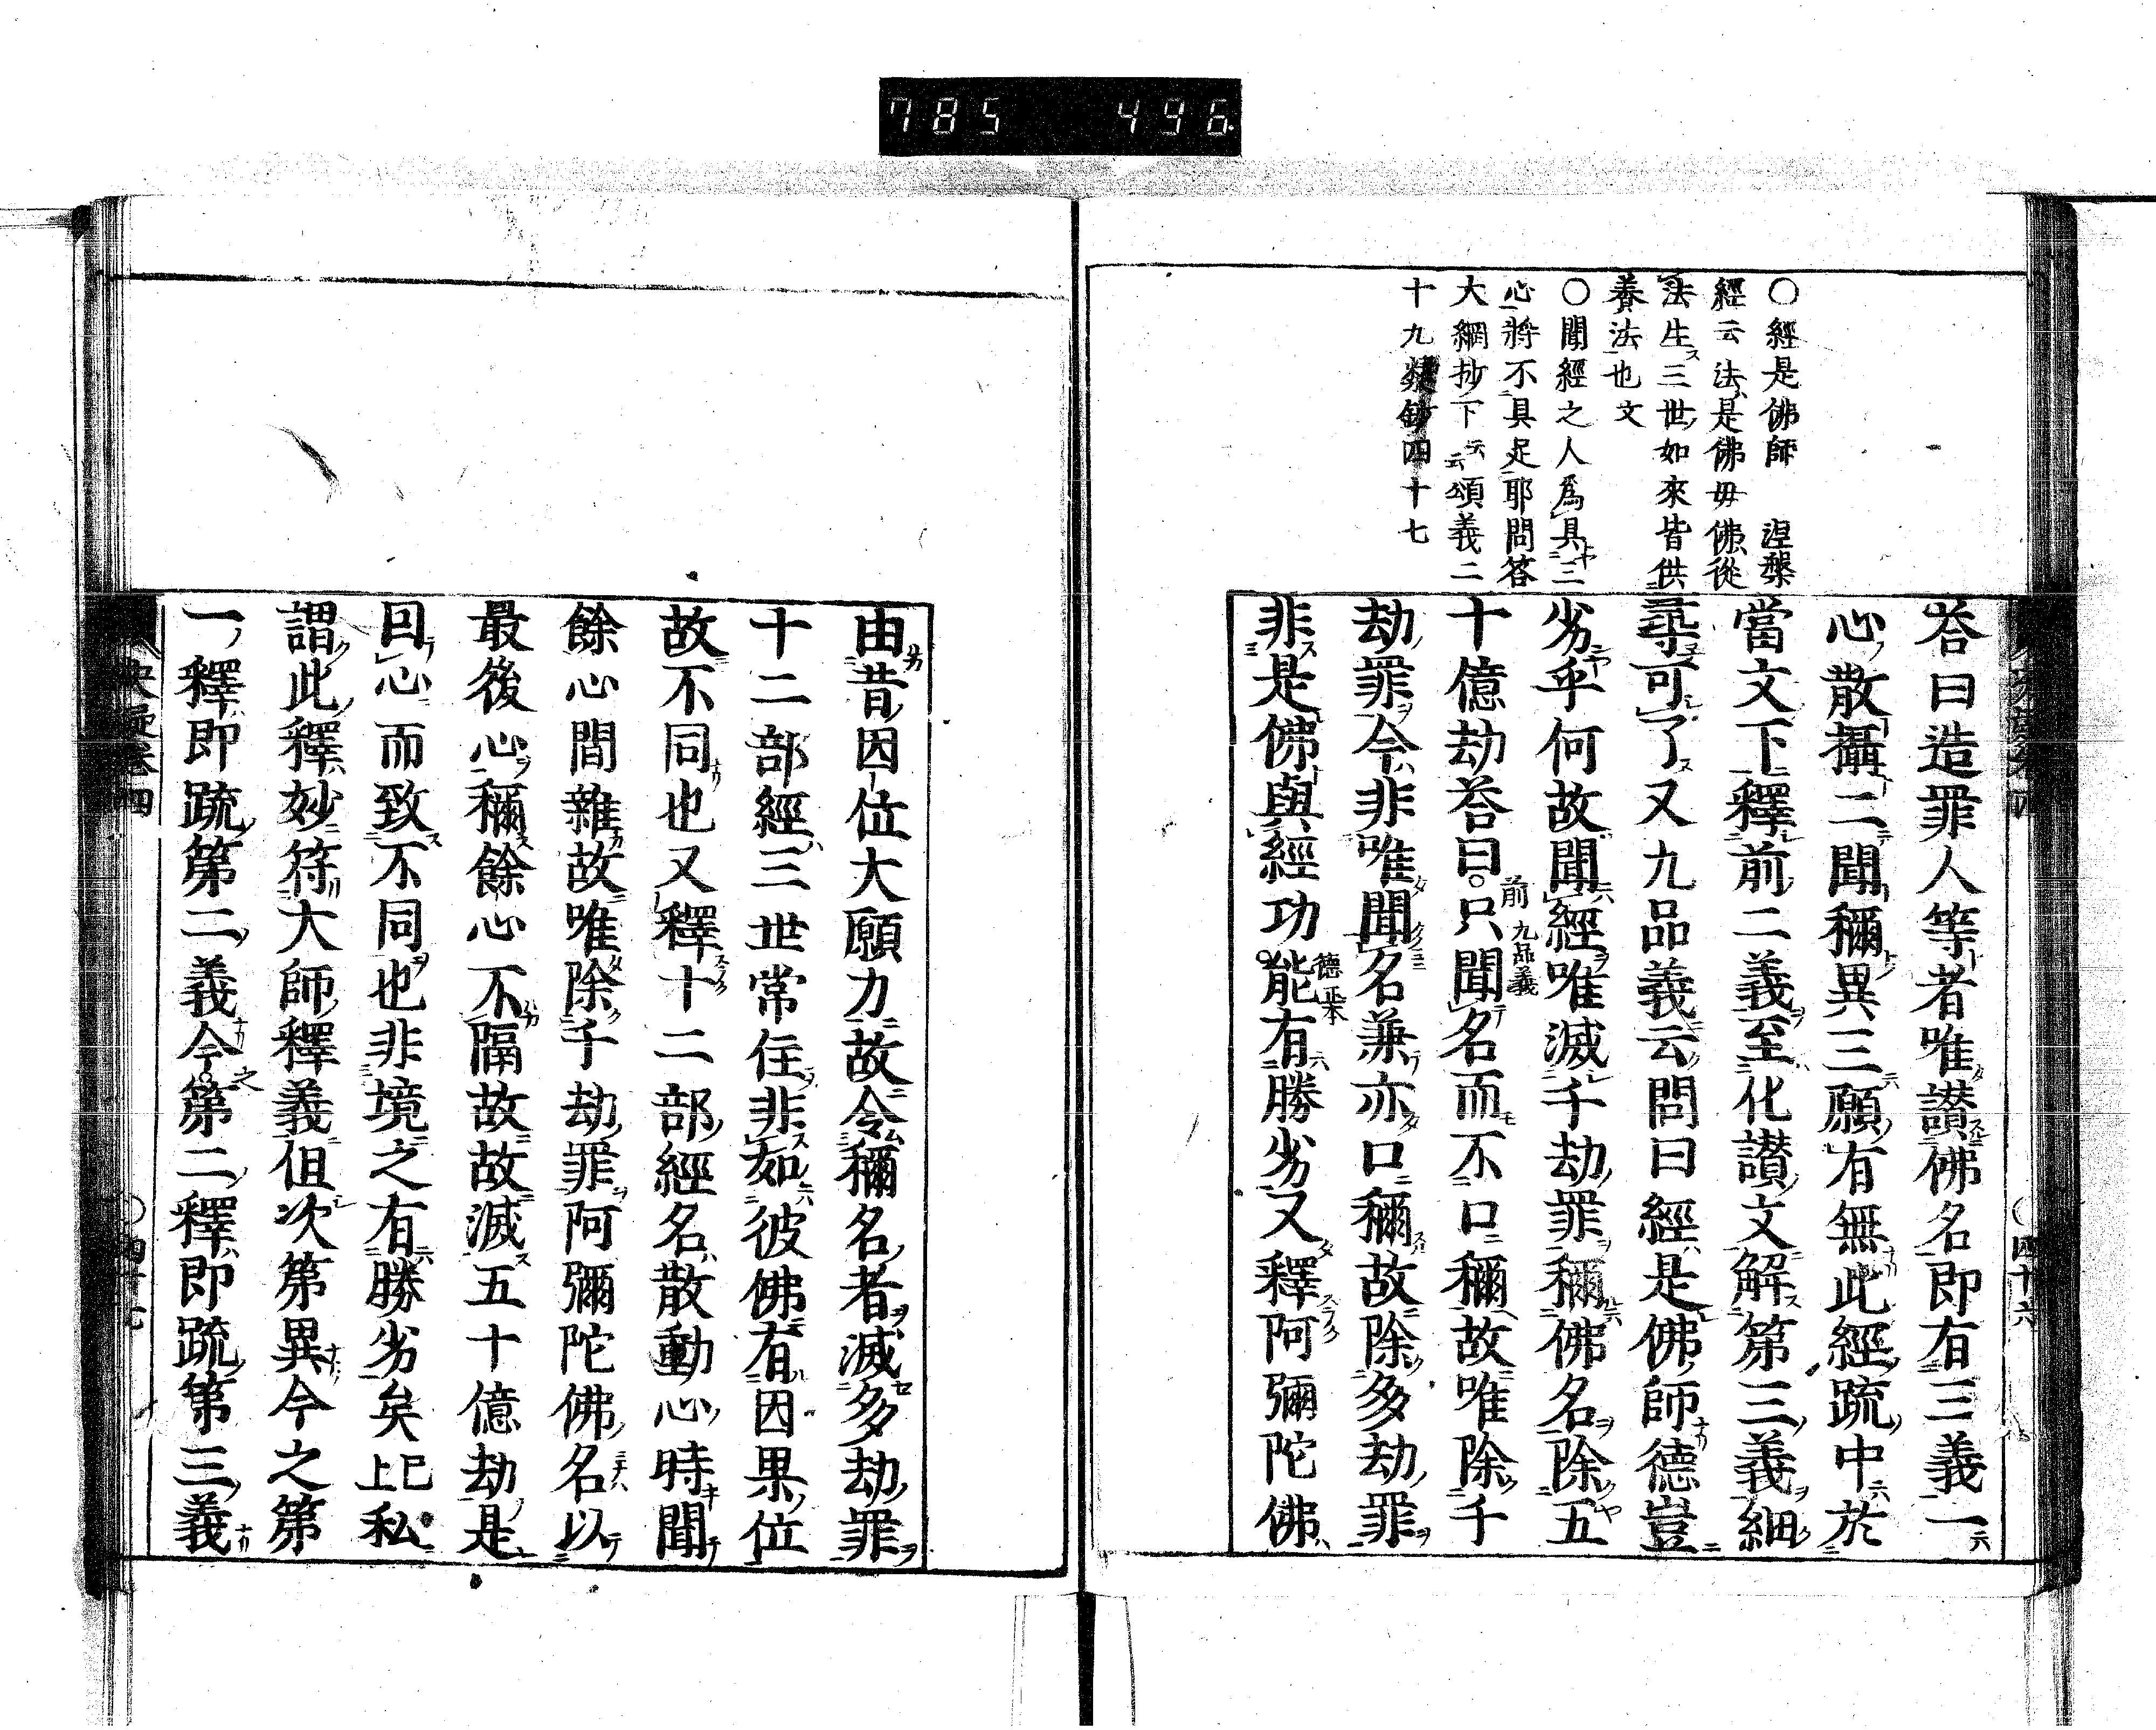 785 496
○經是佛師 涅槃
經云法是佛毋佛從
法生三世如來皆供
養法也文
○聞經之人爲具三
心將不具足耶問答
大網抄下云云頌義二
十九䟽鈔四十七
荅曰造罪人等者唯讃佛名即有三義一
心散攝二聞稱異三願有無此經䟽中於
當文下釋前二義至化讃文解第三義細
尋可了又九品義云問曰經是佛師德豈
劣乎何故聞經唯滅千劫罪稱佛名除五
十億劫荅曰只聞名而不口稱故唯除千
前九品義
劫罪今非唯聞名兼亦口稱故除多劫罪
非是佛與經功能有勝劣又釋阿彌陀佛
德正本
四十六
由昔因位大願力故令稱名者滅多劫罪
十二部經三世常住非如彼佛有因果位
故不同也又釋十二部經名散動心時聞
餘心間雜故唯除千劫罪阿彌陀佛名以
最後心稱餘心不隔故故滅五十億劫是
回心而致不同也非境之有勝劣矣已上私
謂此釋妙符大師釋義但次第異今之第
一釋即䟽第二義今之第二釋即䟽第三義
決疑卷四
四十七